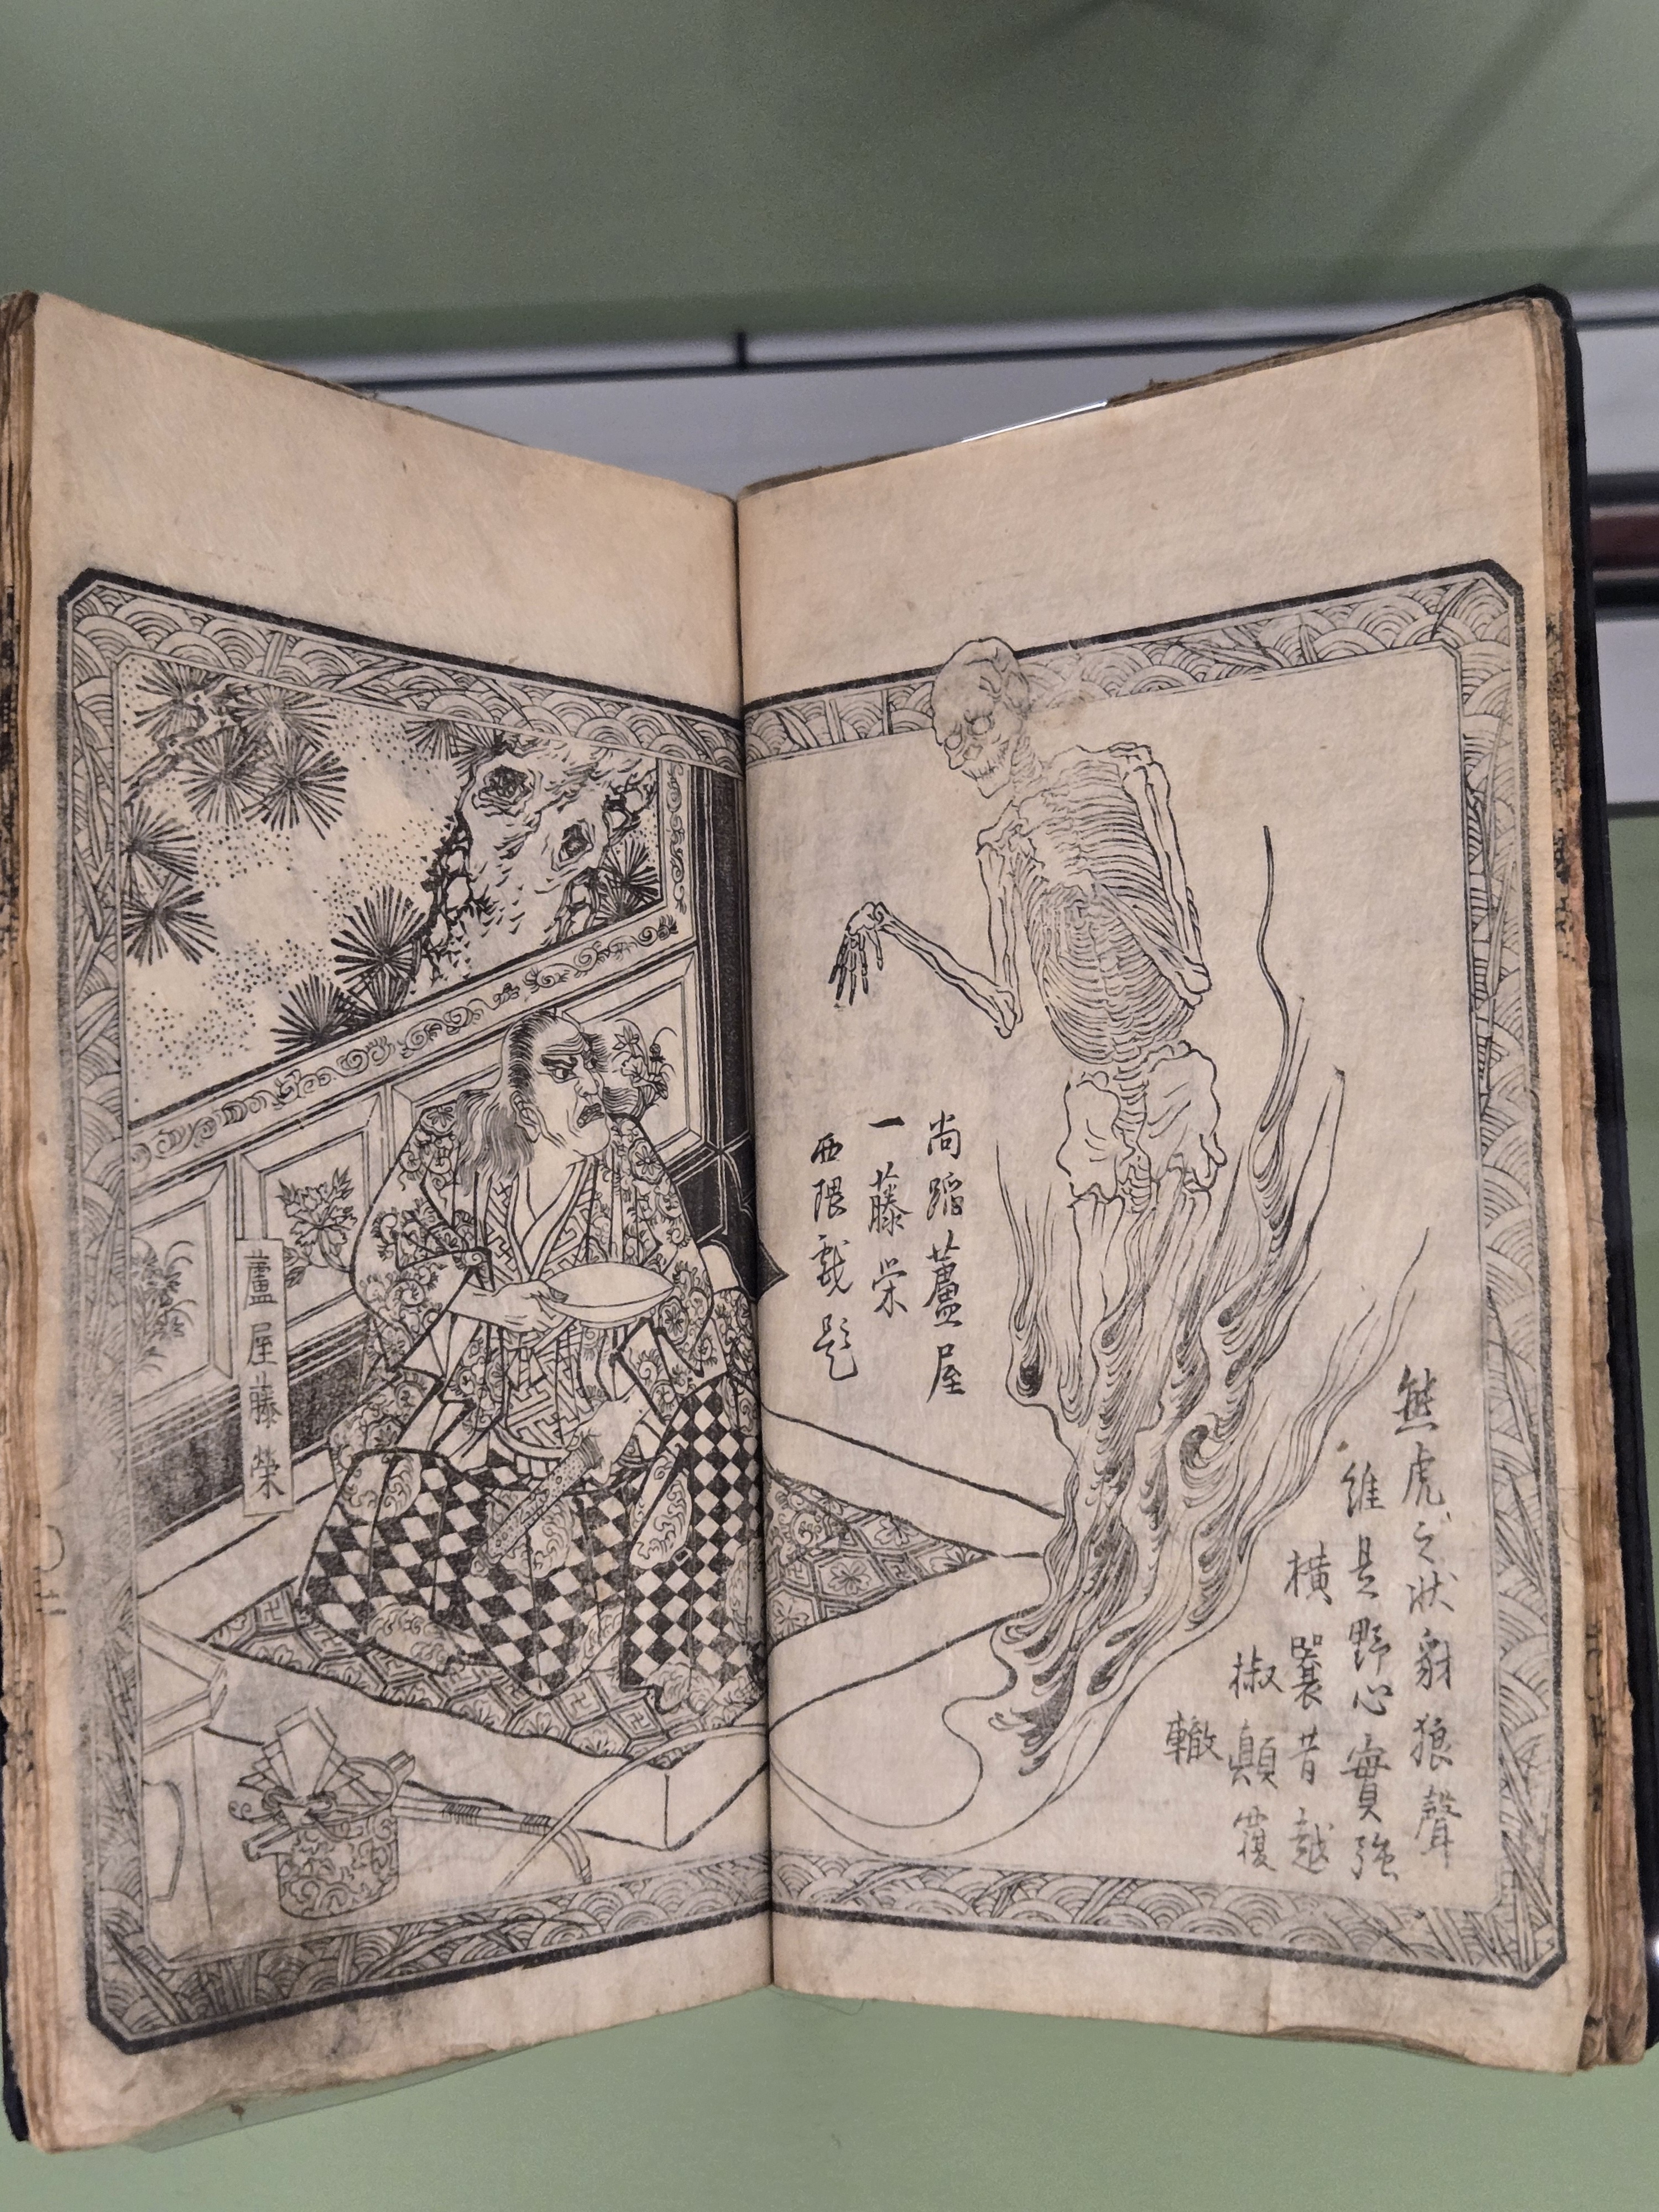 熊虎之状豺狼聲
維是野心實強
横曩昔越
椒顛覆
轍
尚蹈蘆屋
一藤栄
西隈戯題
蘆屋藤榮